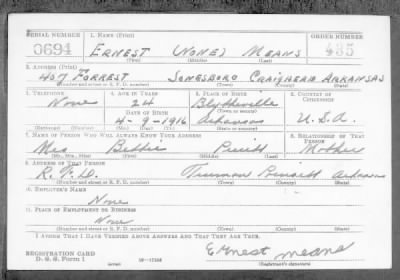 SERIAL NUMBER 1. NAME (Print) ORDER NUMBER
0694 ERNEST (NONE) MEANS 435
(First) (Middle) (Last)
2. ADDRESS (Print)
407 FORREST JONESBORO CRAIGHEAD ARKANSAS
(Number and street or R. F. D. number) (Town) (County) (State)
3. TELEPHONE 4. AGE IN YEARS 5. PLACE OF BIRTH 6. COUNTRY OF CITIZENSHIP
None 24 Blytheville
DATE OF BIRTH (Town or county)
4-9-1916 Arkansas U.S.A.
(Mo.) (Day) (Yr.) (State or country)
7. NAME OF PERSON WHO WILL ALWAYS KNOW YOUR ADDRESS 8. RELATIONSHIP OF THAT PERSON
Mrs Pruitt Mother
(Mr., Mrs., Miss) (First) (Middle) (Last)
9. ADDRESS OF THAT PERSON
R.F.D. Truman Poinsett
(Number and street or R. F. D. number) (Town) (County) (State)
10. EMPLOYER'S NAME
None
11. PLACE OF EMPLOYMENT OR BUSINESS
None
(Number and street or R. F. D. number) (Town) (County) (State)
I AFFIRM THAT I HAVE VERIFIED ABOVE ANSWERS AND THAT THEY ARE TRUE.
REGISTRATION CARD Ernest means
D. S. S. Form 1 (Registrant's signature)